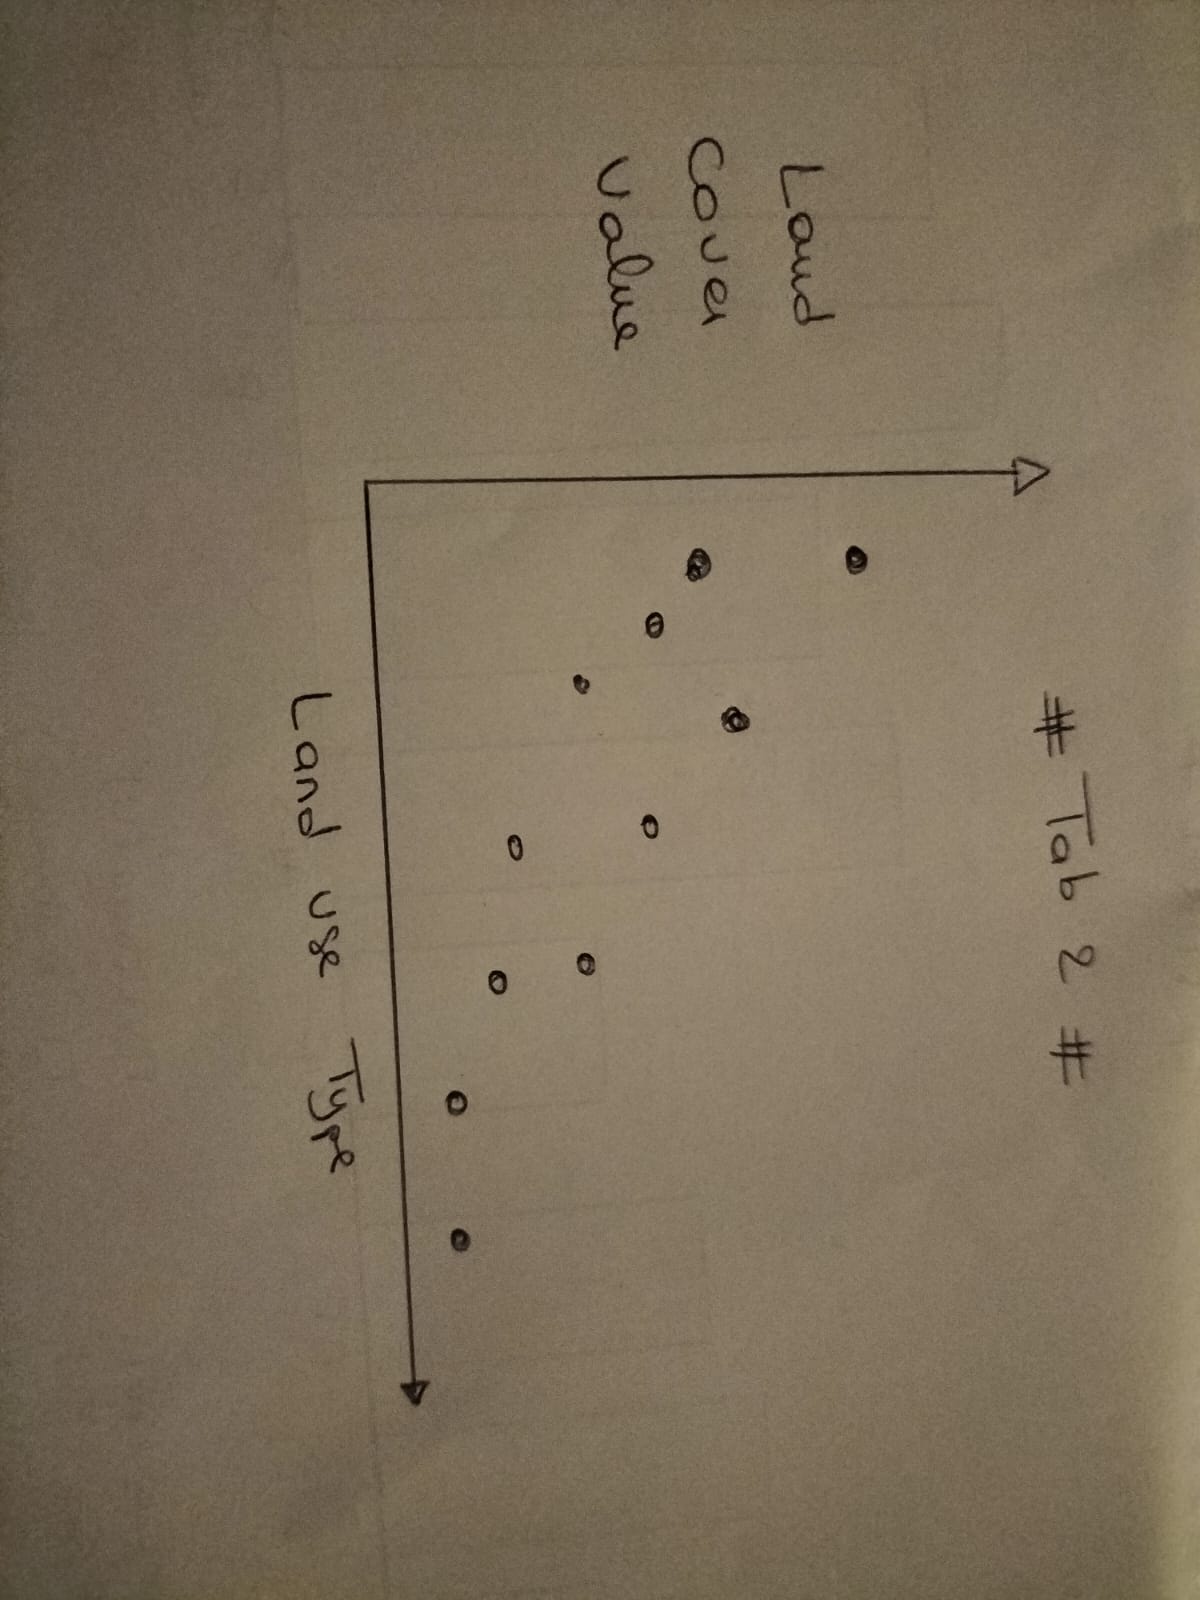 # Tab 2 #
Land
Cover
Value
Land use Type